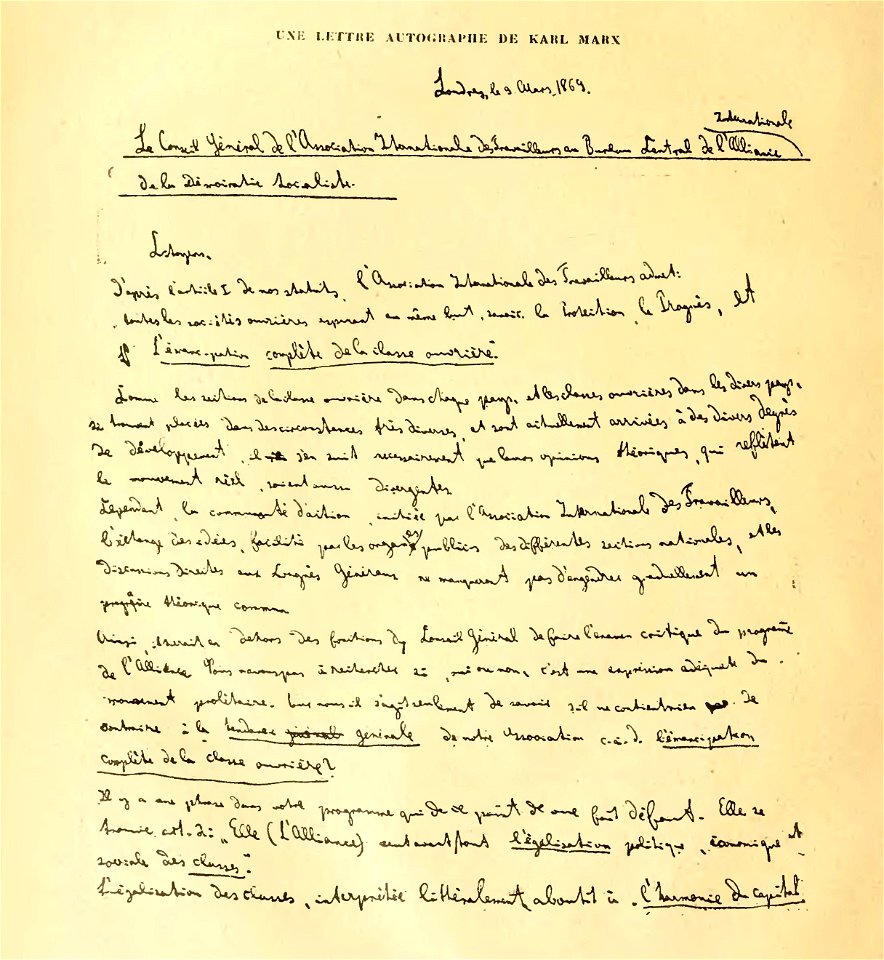 UNE LETTRE AUTOGRAPHE DE KARL MARX
Londres, le 9 Mars, 1869.
Internationale
Le Conseil Général de l'Association Internationale des Travailleurs au Bureau Central de l'Alliance
de la Démocratie Socialiste.
Citoyens,
D'après l'article I de nos statuts, l'Association Internationale des Travailleurs admet:
"toutes les sociétés ouvrières aspirant au même but, savoir: la Protection, le Progrès, et
l'émancipation complète de la classe ouvrière."
Comme les sections de la classe ouvrière dans chaque pays, et les classes ouvrières dans les divers pays,
se trouvent placées dans des circonstances très diverses, et sont actuellement arrivées à des divers degrés
de développement, il s'en suit nécessairement que leurs opinions théoriques, qui reflètent
le mouvement réel, soient aussi divergentes.
Cependant, la communauté d'action, initiée par l'Association Internationale des Travailleurs,
l'échange des idées, facilité par les organes publics des différentes sections nationales, et les
discussions directes aux Congrès Généraux ne manqueront pas d'engendrer graduellement un
programme théorique commun
Ainsi, il serait en dehors des fonctions du Conseil Général de faire l'examen critique du programme
de l'Alliance. Nous n'avons pas à rechercher si, oui ou non, c'est une expression adéquate du
mouvement prolétaire. Pour nous il s'agit seulement de savoir s'il ne contient rien de
contraire à la tendance générale de notre Association c.à.d. l'émancipation
complète de la classe ouvrière?
Il y a une phrase dans votre programme qui de ce point de vue fait défaut. Elle se
trouve art. 2: "Elle (L'Alliance) veut avant tout l'égalisation politique, économique et
sociale des classes".
L'égalisation des classes, interprétée littéralement, aboutit à l'harmonie du capital